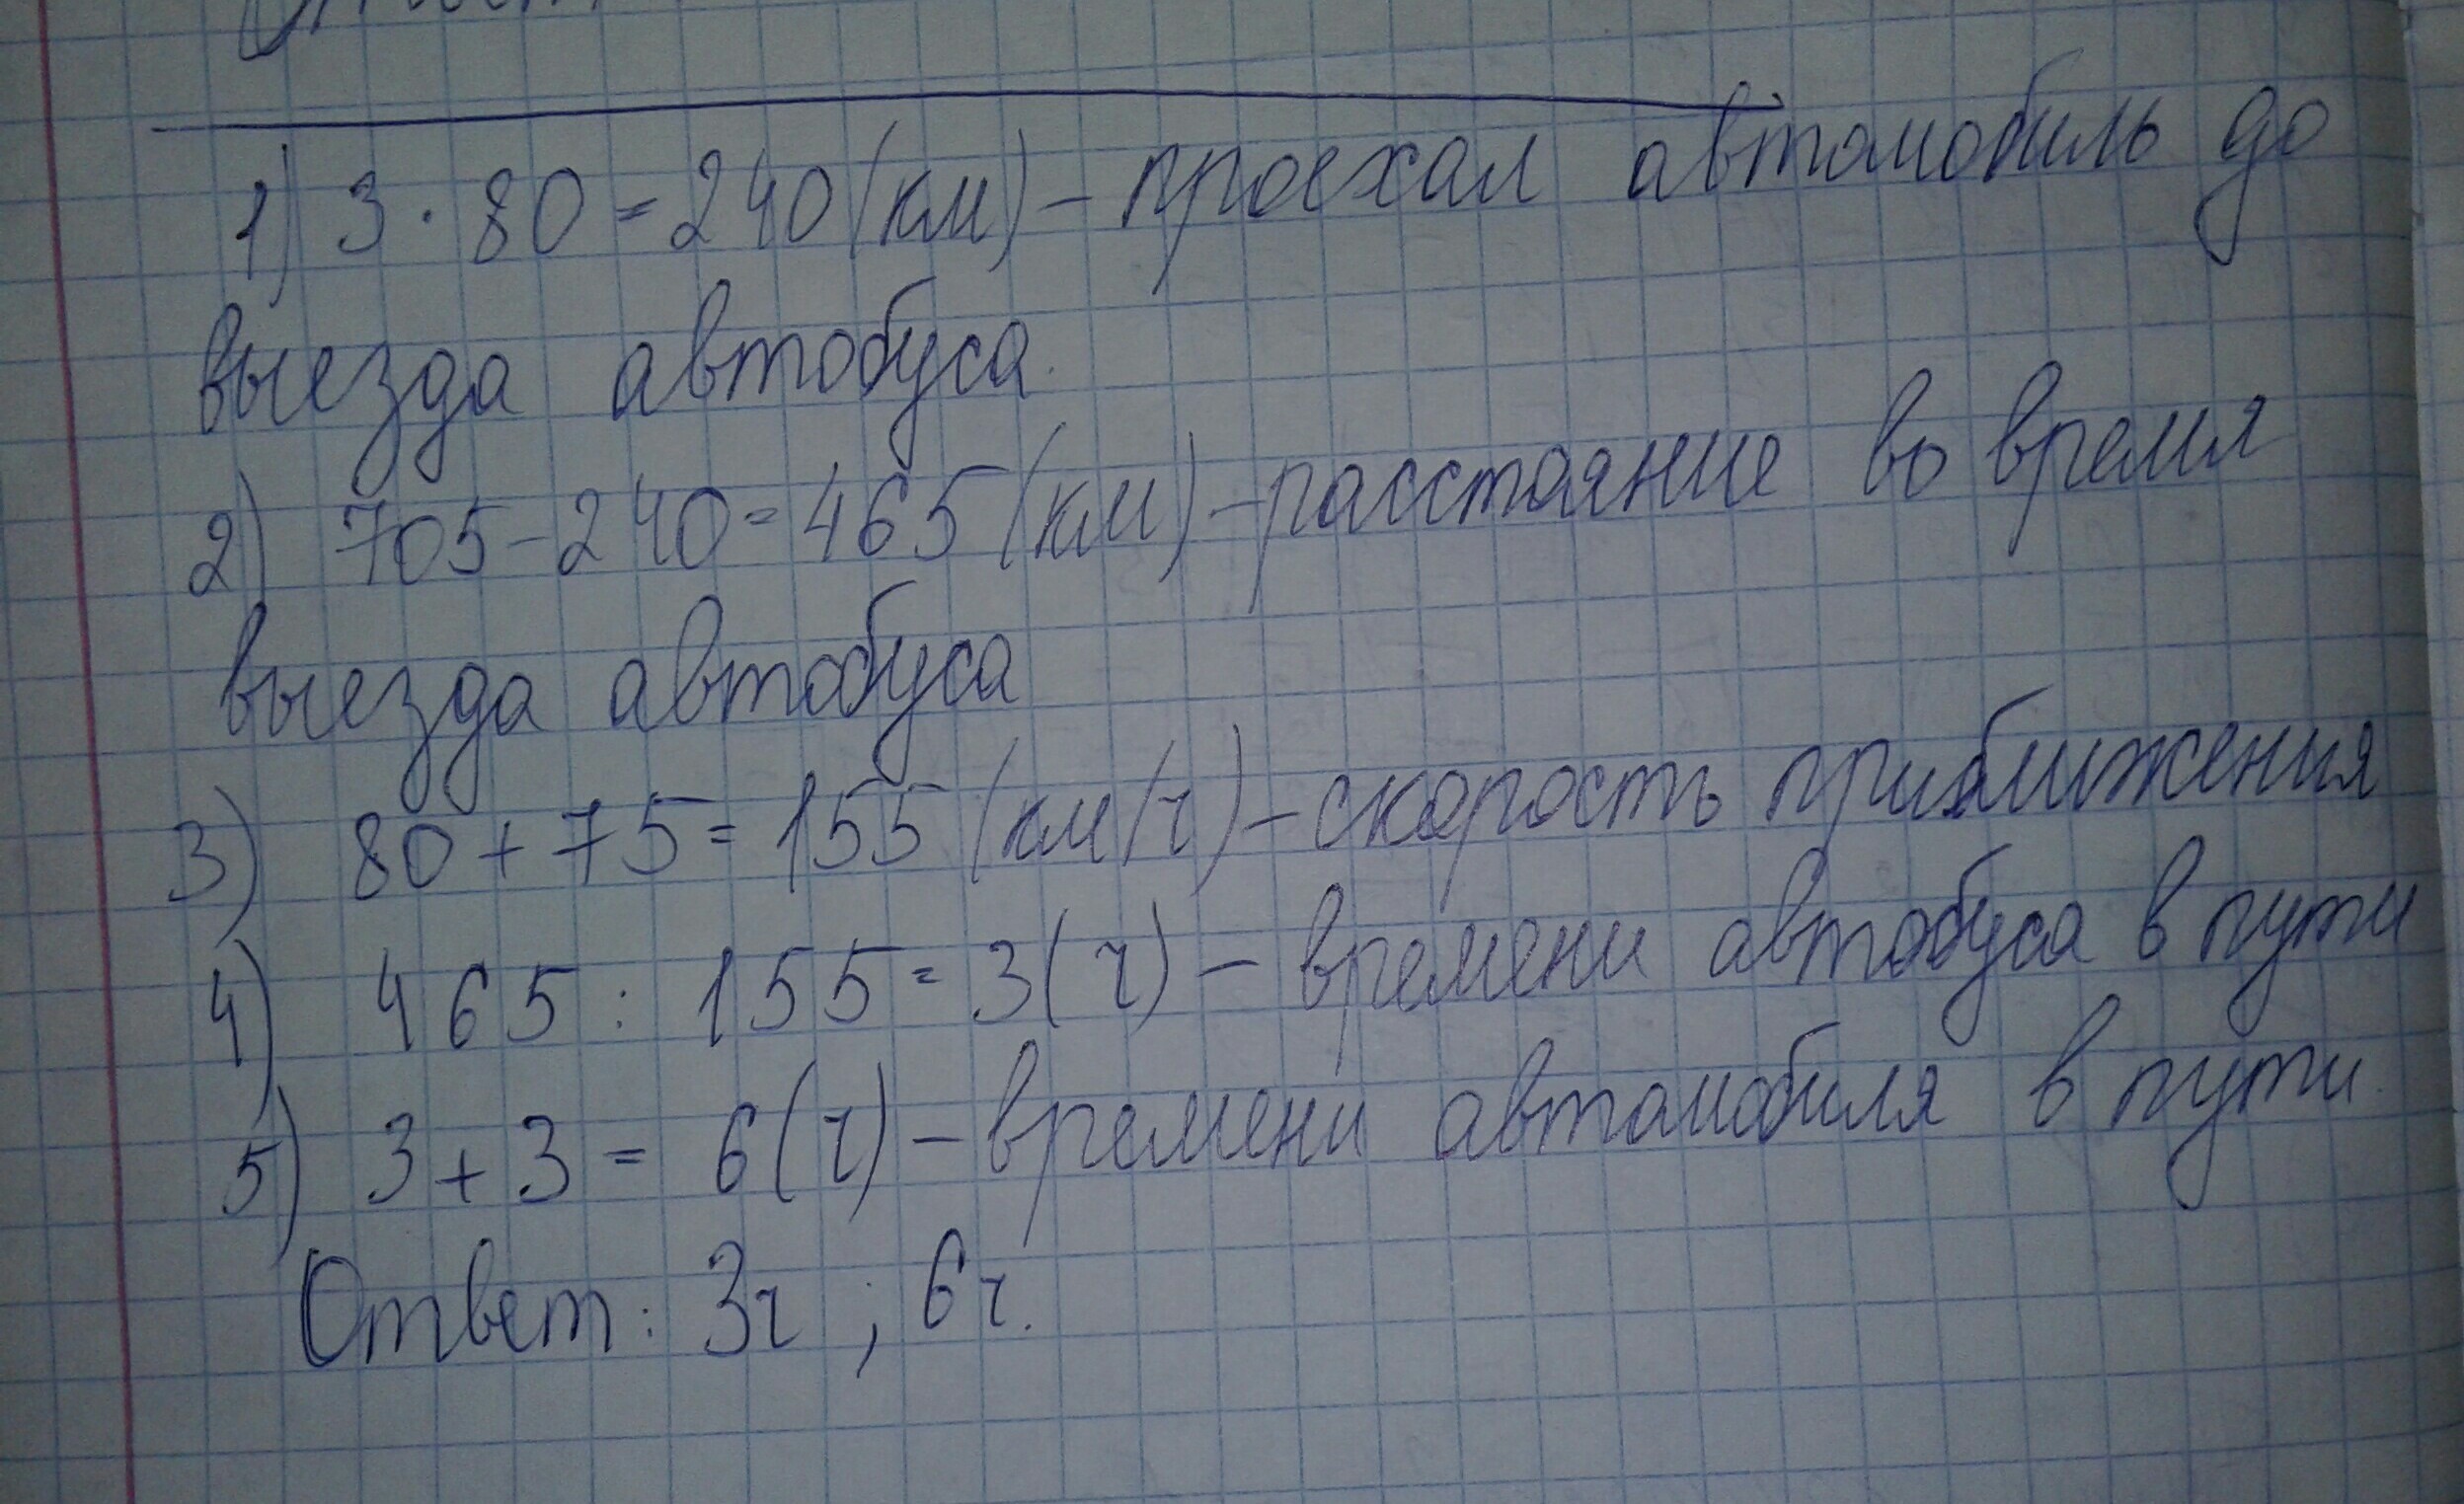 1) 3 · 80 = 240 (км) - проехал автомобиль до
выезда автобуса.
2) 705 - 240 = 465 (км) - расстояние во время
выезда автобуса
3) 80 + 75 = 155 (км/ч) - скорость приближения
4) 465 : 155 = 3 (ч) - времени автобуса в пути
5) 3 + 3 = 6 (ч) - времени автомобиля в пути.
Ответ: 3ч ; 6ч.